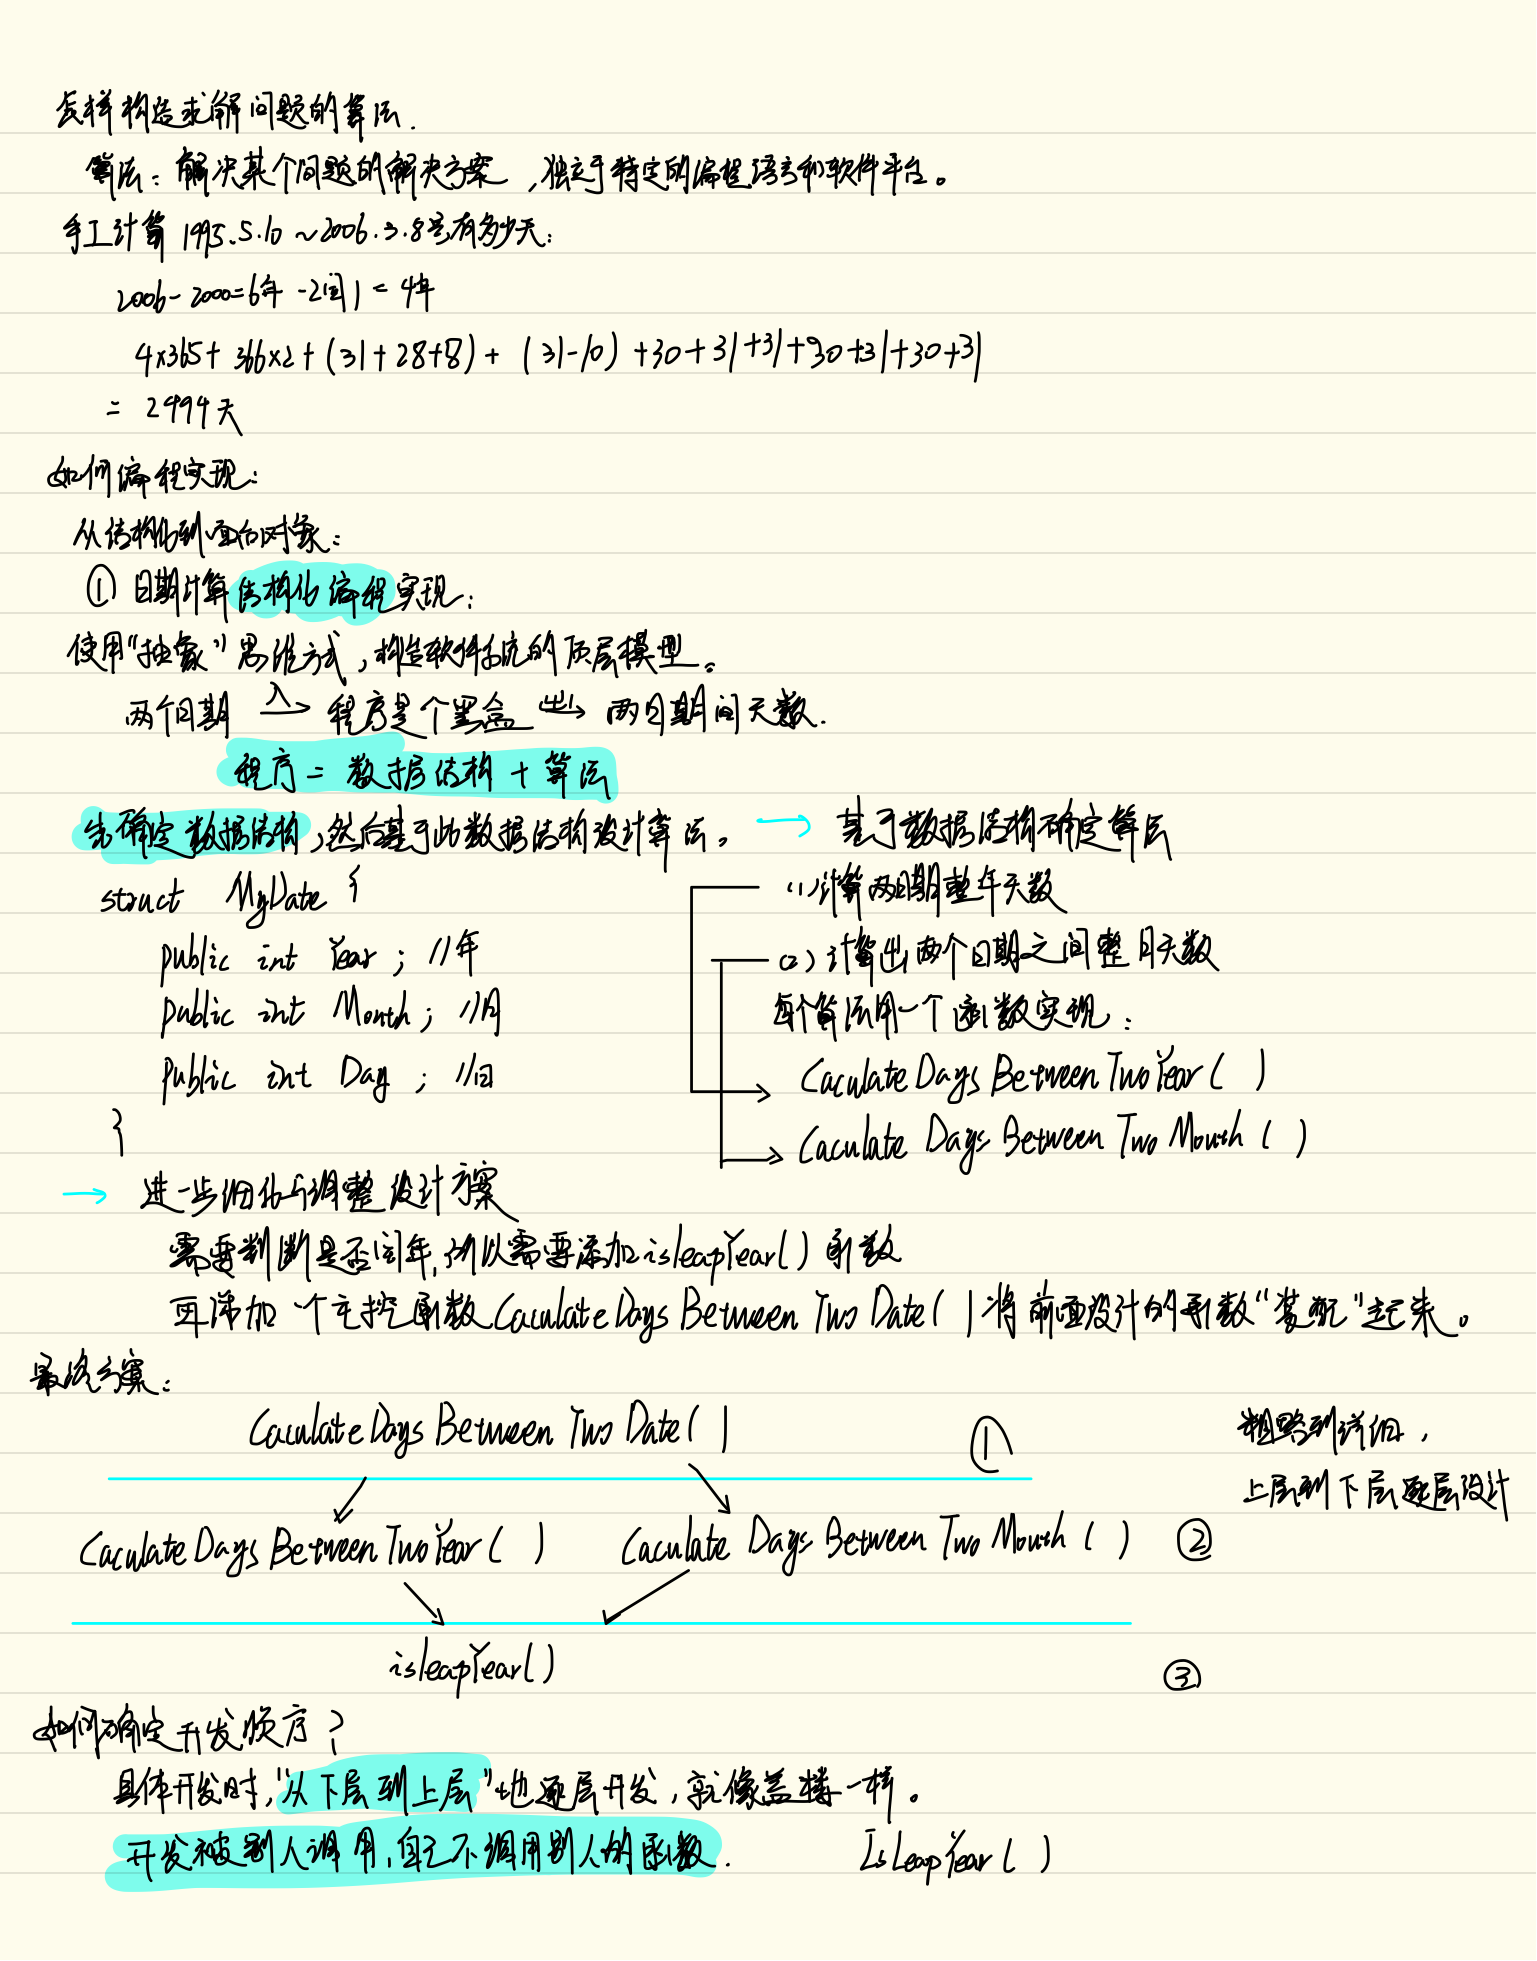 怎样构造求解问题的算法.
算法：解决某个问题的解决方案，独立于特定的编程语言和软件平台。
手工计算 1995.5.10 ~ 2006.3.8号有多少天：
2006-2000=6年 -2闰 = 4年
4×365+ 366×2 + (31+28+8) + (31-10) +30+31+31+30+31+30+31
= 2494天
如何编程实现：
从结构化到面向对象：
① 日期计算结构化编程实现：
使用“抽象”思维方式，构造软件系统的顶层模型。
两个日期 入→ 程序是个黑盒 出→ 两日期间天数.
程序 = 数据结构 + 算法
先确定数据结构，然后基于此数据结构设计算法。 → 基于数据结构确定算法
struct MyDate {
public int Year; //年
public int Month; //月
public int Day; //日
}
(1)计算两日期整年天数
(2)计算出两个日期之间整月天数
每个算法用一个函数实现：
CaculateDaysBetweenTwoYear( )
Caculate Days Between Two Month ( )
→ 进一步细化与调整设计方案
需要判断是否闰年,所以需要添加isleapYear()函数
再添加一个主控函数CaculateDaysBetweenTwoDate( )将前面设计的函数“装配”起来。
最终方案：
CaculateDaysBetweenTwoDate( ) ①
粗略到详细，
上层到下层逐层设计
CaculateDaysBetweenTwoYear( ) Caculate Days Between Two Month ( ) ②
isleapYear() ③
如何确定开发顺序？
具体开发时,“从下层到上层”地逐层开发，就像盖楼一样。
开发被别人调用,自己不调用别人的函数. IsLeapYear( )